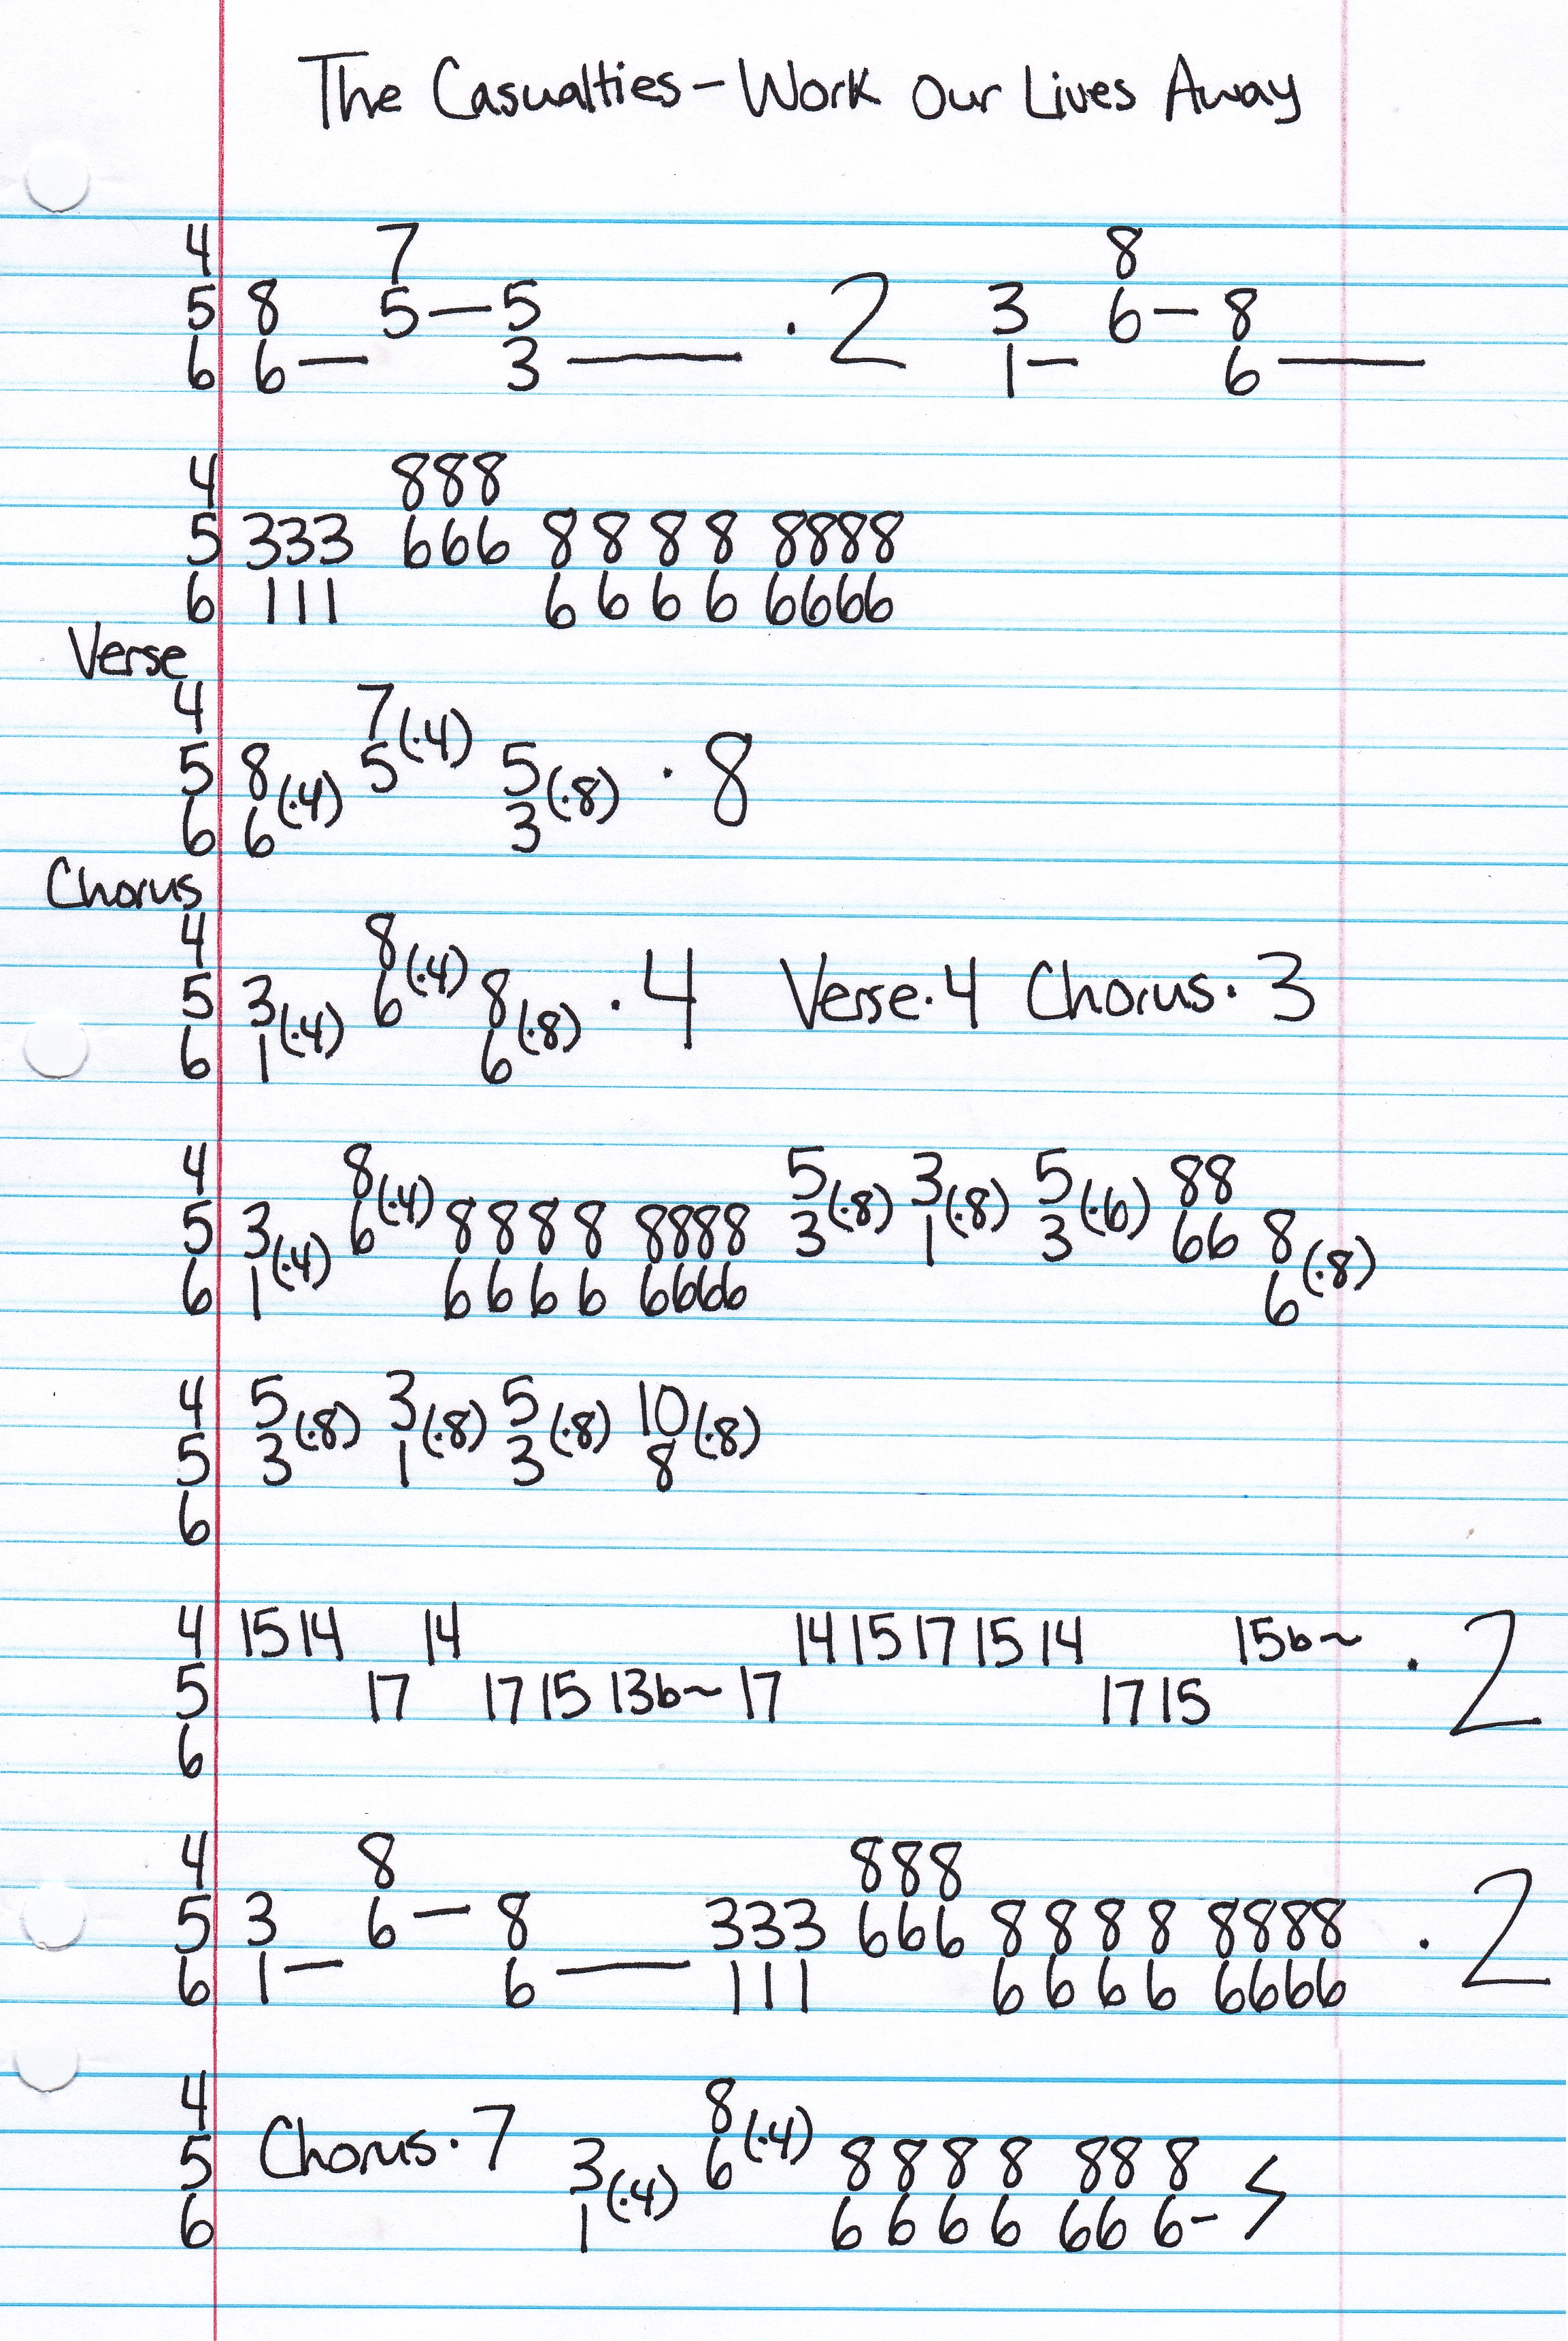 The Casualties - Work Our Lives Away
4 7 8
5 8 5 — 5 · 2 3 6 — 8
6 6 — 3 —— 1 — 6 ——
4 888
5 333 666 8 8 8 8 8888
6 111 6 6 6 6 6666
Verse
4 7 (·4)
5 8 (·4) 5 5 (·8) · 8
6 6 3
Chorus
4 8 (·4)
5 3 (·4) 6 8 (·8) · 4 Verse · 4 Chorus · 3
6 1 6
4 8 (·4) 5 (·8) 3 (·8) 5 (·6) 88
5 3 (·4) 6 8 8 8 8 8888 3 1 3 66 8 (·8)
6 1 6 6 6 6 6666 6
4 5 (·8) 3 (·8) 5 (·8) 10 (·8)
5 3 1 3 8
6
4 15 14 14 14 15 17 15 14 15b~ · 2
5 17 17 15 13b~ 17 17 15
6
4 8 888
5 3 6 — 8 333 666 8 8 8 8 8888 · 2
6 1 — 6 —— 111 6 6 6 6 6666
4 8 (·4)
5 Chorus · 7 3 (·4) 6 8 8 8 8 88 8
6 1 6 6 6 6 66 6-